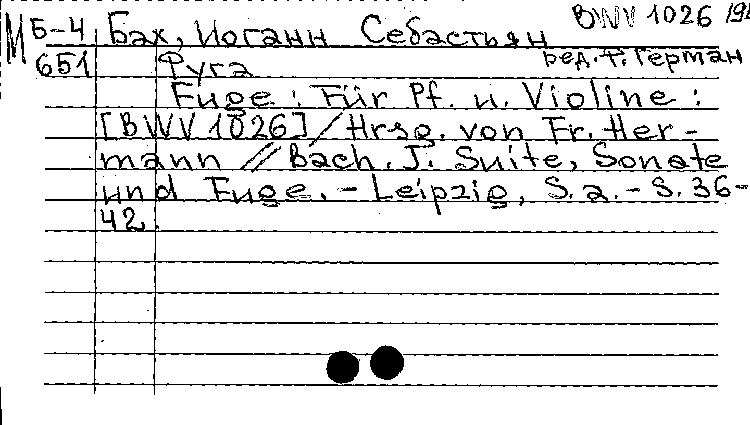 М Б-4 Бах, Иоганн Себастьян BWV 1026
651 Фуга ред. Ф. Герман
Fuge : Für Pf. u. Violine :
[BWV 1026] / Hrsg. von Fr. Her-
mann // Bach. J. Suite, Sonate
und Fuge. - Leipzig, S. a. - S. 36-
42.